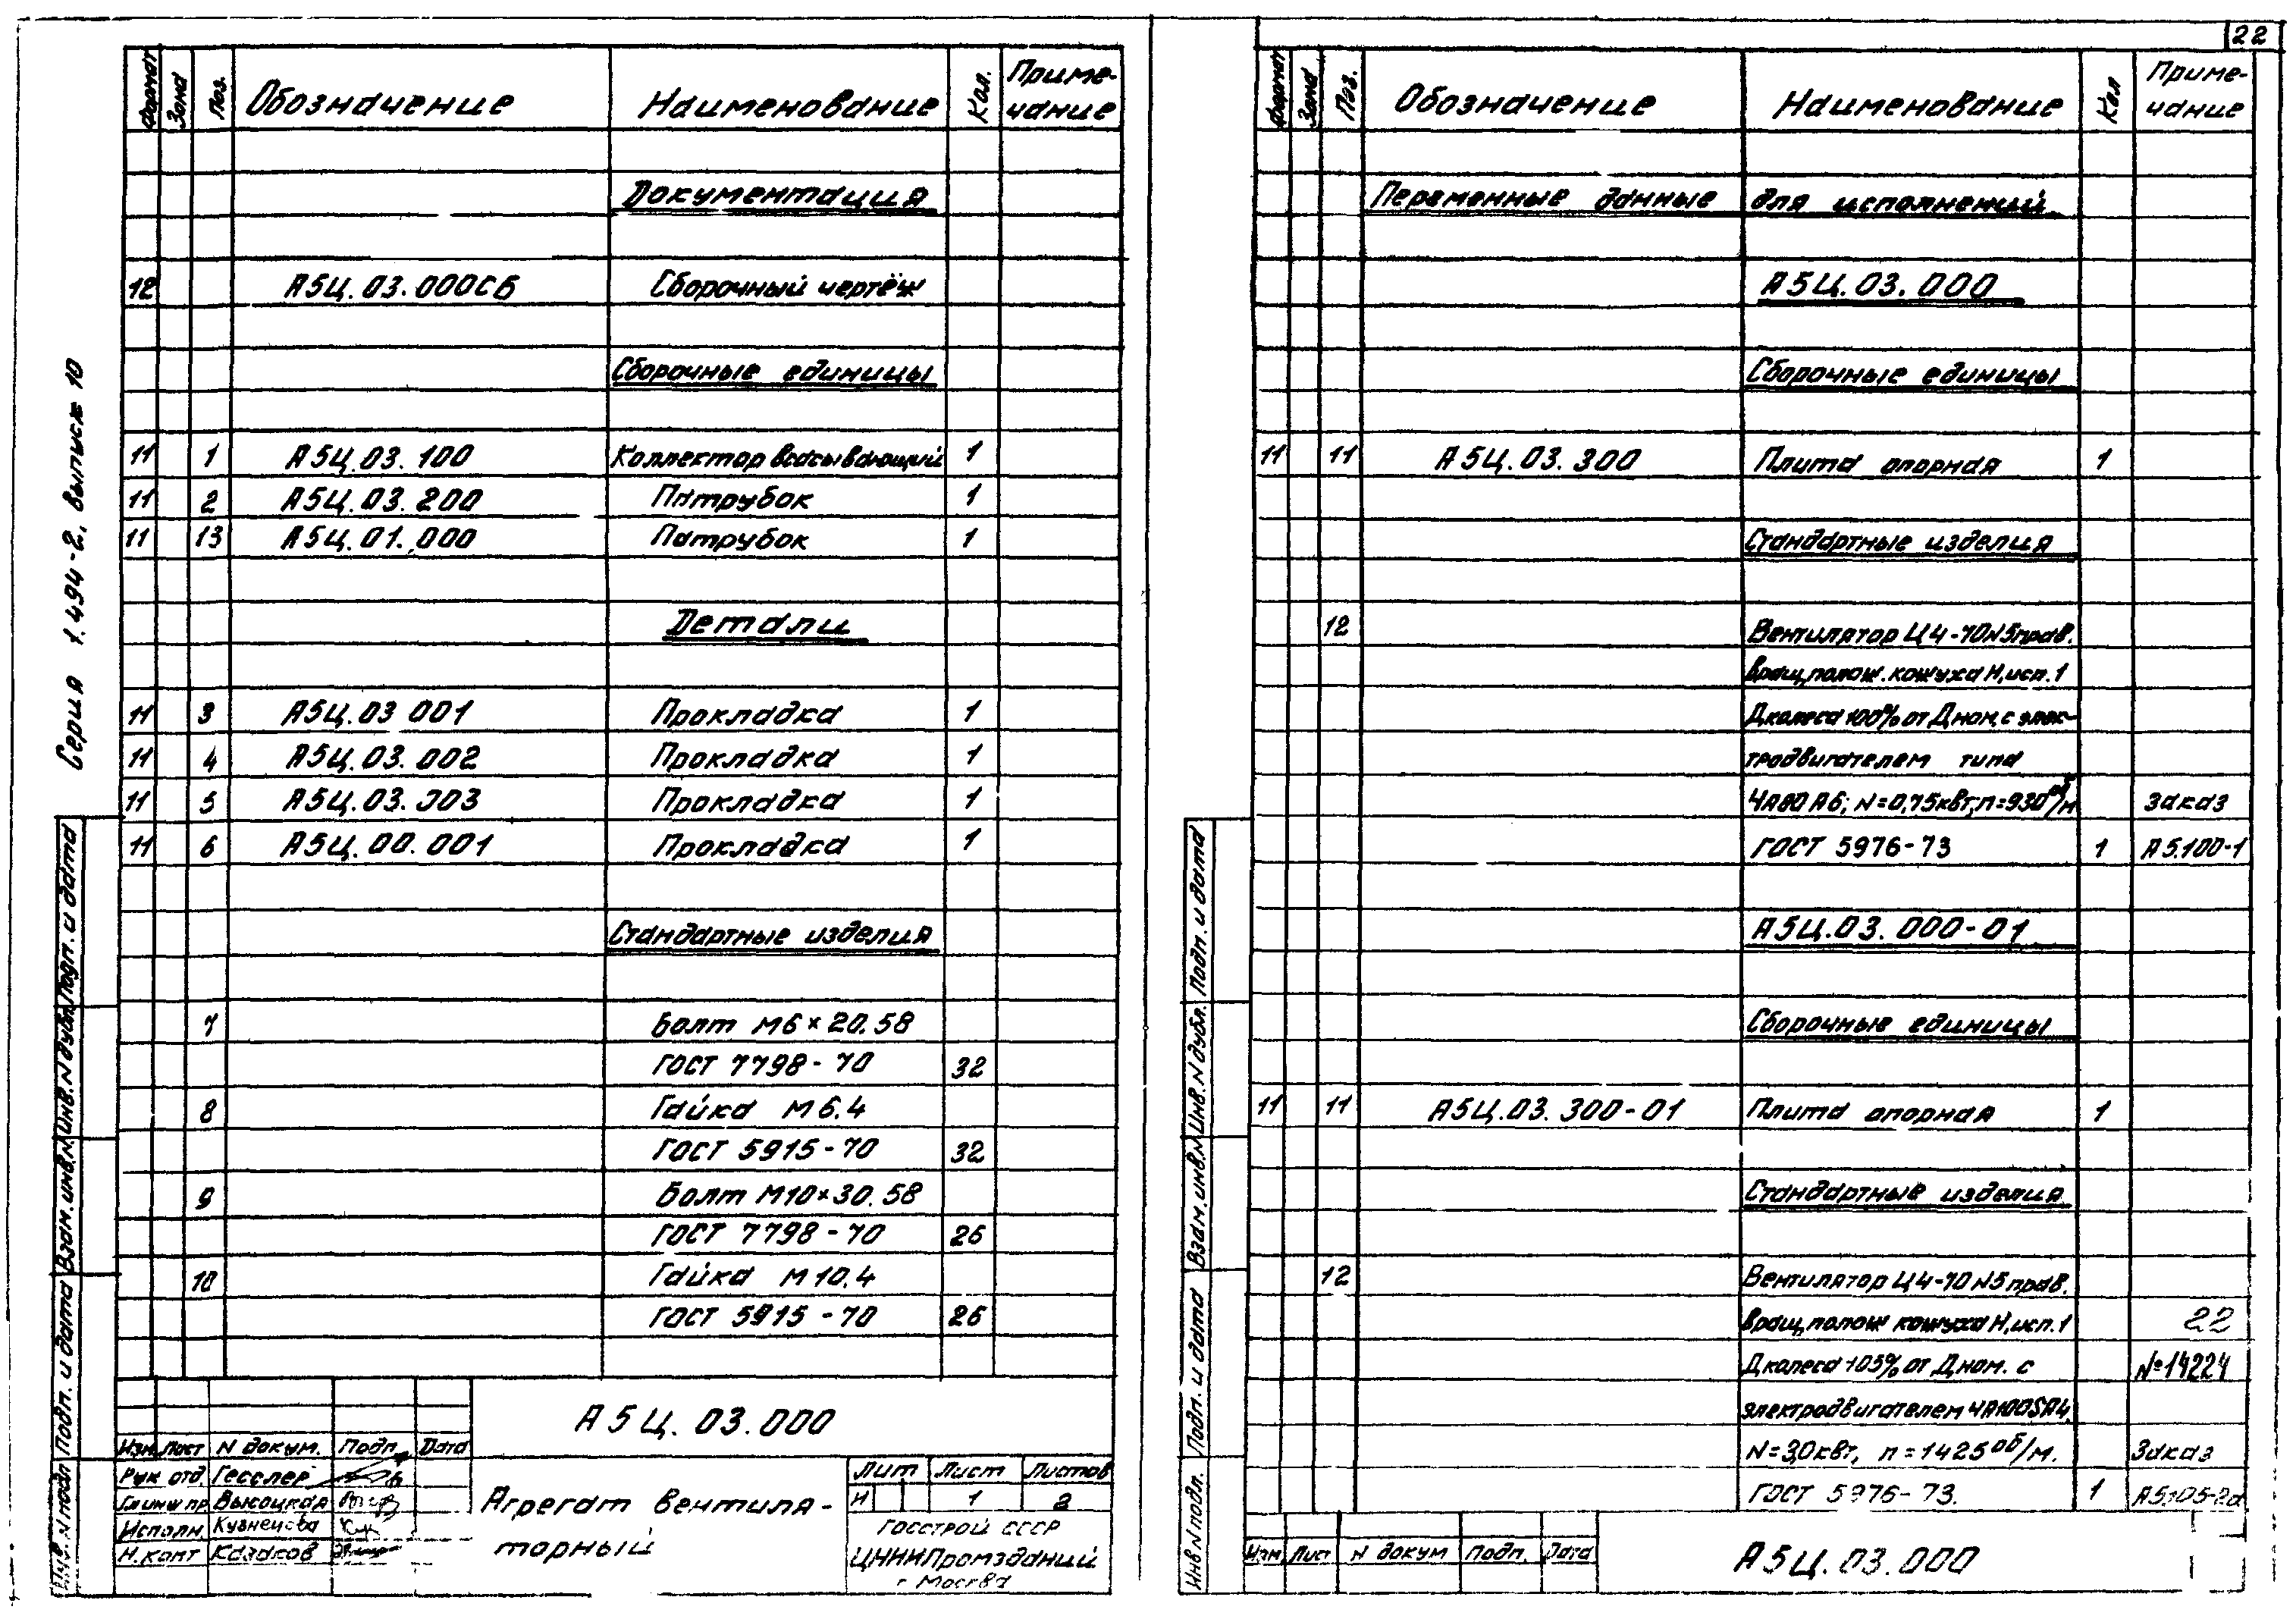 22
Серия 1.494-2, выпуск 10
Формат Зона Поз. Обозначение Наименование Кол. Приме-
чание
Документация
12 А5Ц.03.000СБ Сборочный чертёж
Сборочные единицы
11 1 А5Ц.03.100 Коллектор всасывающий 1
11 2 А5Ц.03.200 Патрубок 1
11 13 А5Ц.01.000 Патрубок 1
Детали
11 3 А5Ц.03 001 Прокладка 1
11 4 А5Ц.03.002 Прокладка 1
11 5 А5Ц.03.003 Прокладка 1
11 6 А5Ц.00.001 Прокладка 1
Стандартные изделия
7 Болт М6×20.58
ГОСТ 7798-70 32
8 Гайка М6.4
ГОСТ 5915-70 32
9 Болт М10×30.58
ГОСТ 7798-70 26
10 Гайка М10.4
ГОСТ 5915-70 26
Подп. и дата
Инв. N дубл.
Взам. инв. N
Подп. и дата
Инв. N подл
А5Ц.03.000
Изм Лист N докум. Подп. Дата
Рук отд. Гесслер
Гл инж пр Высоцкая
Исполн. Кузнецова
Н.конт Казаков
Агрегат вентиля-
торный
Лит Лист Листов
И 1 2
Госстрой СССР
ЦНИИПромзданий
г Москва
Формат Зона Поз. Обозначение Наименование Кол Приме-
чание
Переменные данные для исполнений
А5Ц.03.000
Сборочные единицы
11 11 А5Ц.03.300 Плита опорная 1
Стандартные изделия
12 Вентилятор Ц4-70N5прав.
вращ,полож.кожуха Н,исп.1
Дколеса 100% от Дном, с элек-
тродвигателем типа
4А80А6; N=0,75квт,n=930об/м Заказ
ГОСТ 5976-73 1 А5.100-1
А5Ц.03.000-01
Сборочные единицы
11 11 А5Ц.03.300-01 Плита опорная 1
Стандартные изделия
12 Вентилятор Ц4-70 N5 прав.
вращ,полож кожуха Н,исп.1 22
Дколеса 105% от Дном. с №14224
электродвигателем 4А100SА4,
N=3,0квт, n=1425об/м. Заказ
ГОСТ 5976-73. 1 А5.105-2а
Подп. и дата
Инв. N дубл.
Взам. инв. N
Подп. и дата
Инв N подл.
Изм Лист N докум Подп. Дата
А5Ц.03.000